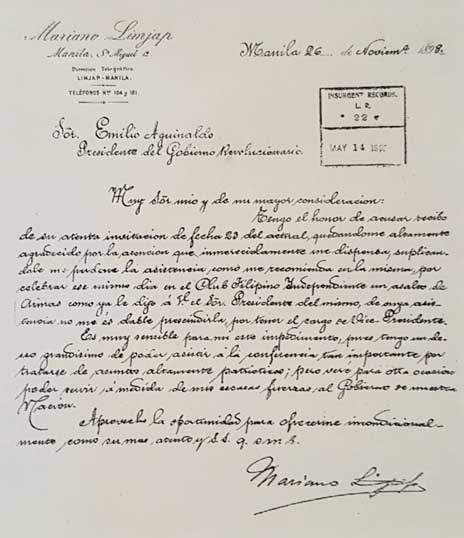 Mariano Limjap
Manila, Sn. Miguel 2.
Direccion Telegráfica
LIMJAP-MANILA.
TELÉFONOS Nos 104 y 181.
Manila 26 de Noviembe 1898.
INSURGENT RECORDS.
L. R.
* 22 *
MAY 14
Sor. Emilio Aguinaldo
Presidente del Gobierno Revolucionario.
Muy Sor mio y de mi mayor consideracion:
Tengo el honor de acusar recibo
de su atenta invitacion de fecha 23 del actual, quedandome altamente
agradecido por la atencion que inmerecidamente me dispensa, suplican-
dole me perdone la asistencia, como me recomienda en la misma, por
celebrar ese mismo dia en el Club Filipino Independiente un asalto de
Armas como ya le dijo á V. el Sor. Presidente del mismo, de cuya asis-
tencia no me és dable prescindirla, por tener el cargo de Vice Presidente.
Es muy sensible para mi este impedimento, pues tengo un de-
seo grandisimo de poder asistir á la conferencia, tan importante por
tratarse de asuntos altamente patrioticos; pero para otra ocasion
poder servir á medida de mis escasas fuerzas al Gobierno de nuestra
Nación.
Aprovecho la oportunidad para ofrecerme incondicional-
mente como su mas atento y S. S. q. s. m. b.
Mariano Limjap